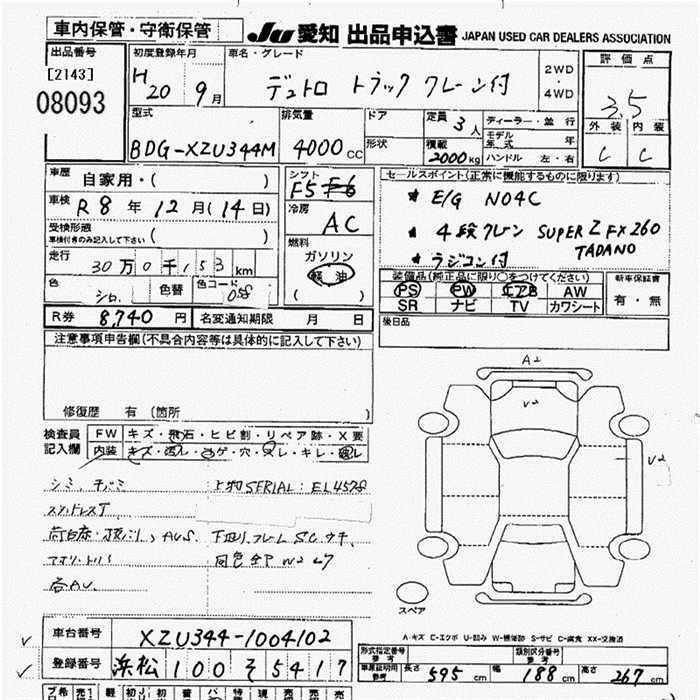 車内保管・守衛保管
JU 愛知 出品申込書 JAPAN USED CAR DEALERS ASSOCIATION
出品番号
[2143]
08093
初度登録年月
H20 9月
車名・グレード
デュトロ トラック クレーン付
2WD・4WD
評価点
3.5
外装 内装
C C
型式
BDG-XZU344M
排気量
4000CC
ドア
形状
定員 3人
積載 2000kg
ディーラー・並行
モデル年式 年
ハンドル 左・右
車歴
自家用・( )
車検
R8年12月(14日)
受検形態
車検付きのみ記入して下さい ( )
走行
30万0千153km
色 シロ 色替 色コード 058
シフト
F5 F6
冷房
AC
燃料
ガソリン
軽油
( )
セールスポイント(正常に機能するものに限ります)
★ E/G N04C
★ 4段クレーン SUPER Z FX260 TADANO
★ ラジコン付
装備品(純正品に限り○をつけてください)
PS PW エアB AW
SR ナビ TV カワシート
新車保証書
有・無
後日品
R券 8,740円 名変通知期限 月 日
注意事項申告欄(不具合内容等は具体的に記入して下さい)
修復歴 有 (箇所 )
検査員記入欄
FW キズ・飛石・ヒビ割・リペア跡・X要
内装 キズ・汚レ・コゲ・穴・スレ・キレ・破レ
上物SERIAL: EL4578
A2
V2
V2
スペア
A-キズ E-エクボ U-凹み W-補修跡 S-サビ C-腐食 XX-交換済
車台番号 XZU344-1004102
登録番号 浜松100そ5417
形式指定番号 参考
類別区分番号 参考
車庫証明用参考 長さ 595cm 幅 188cm 高さ 267cm